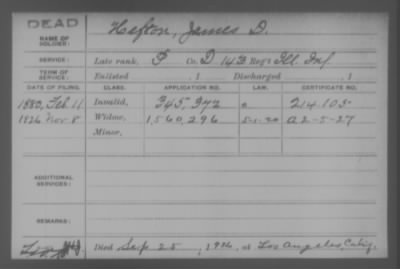 DEAD
NAME OF SOLDIER:
Hefton, James D.
SERVICE:
Late rank, P Co. D 143 Reg't Ill. Inf.
TERM OF SERVICE:
Enlisted , 1 Discharged , 1
DATE OF FILING. CLASS. APPLICATION NO. LAW. CERTIFICATE NO.
1880, Feb 11 Invalid, 345,372 214.105
1926 Nov 8 Widow, 1,560,296 5-1-20 A 2-5-27
Minor,
ADDITIONAL SERVICES:
REMARKS:
Died Sep 25, 1926, at Los Angeles, Calif.